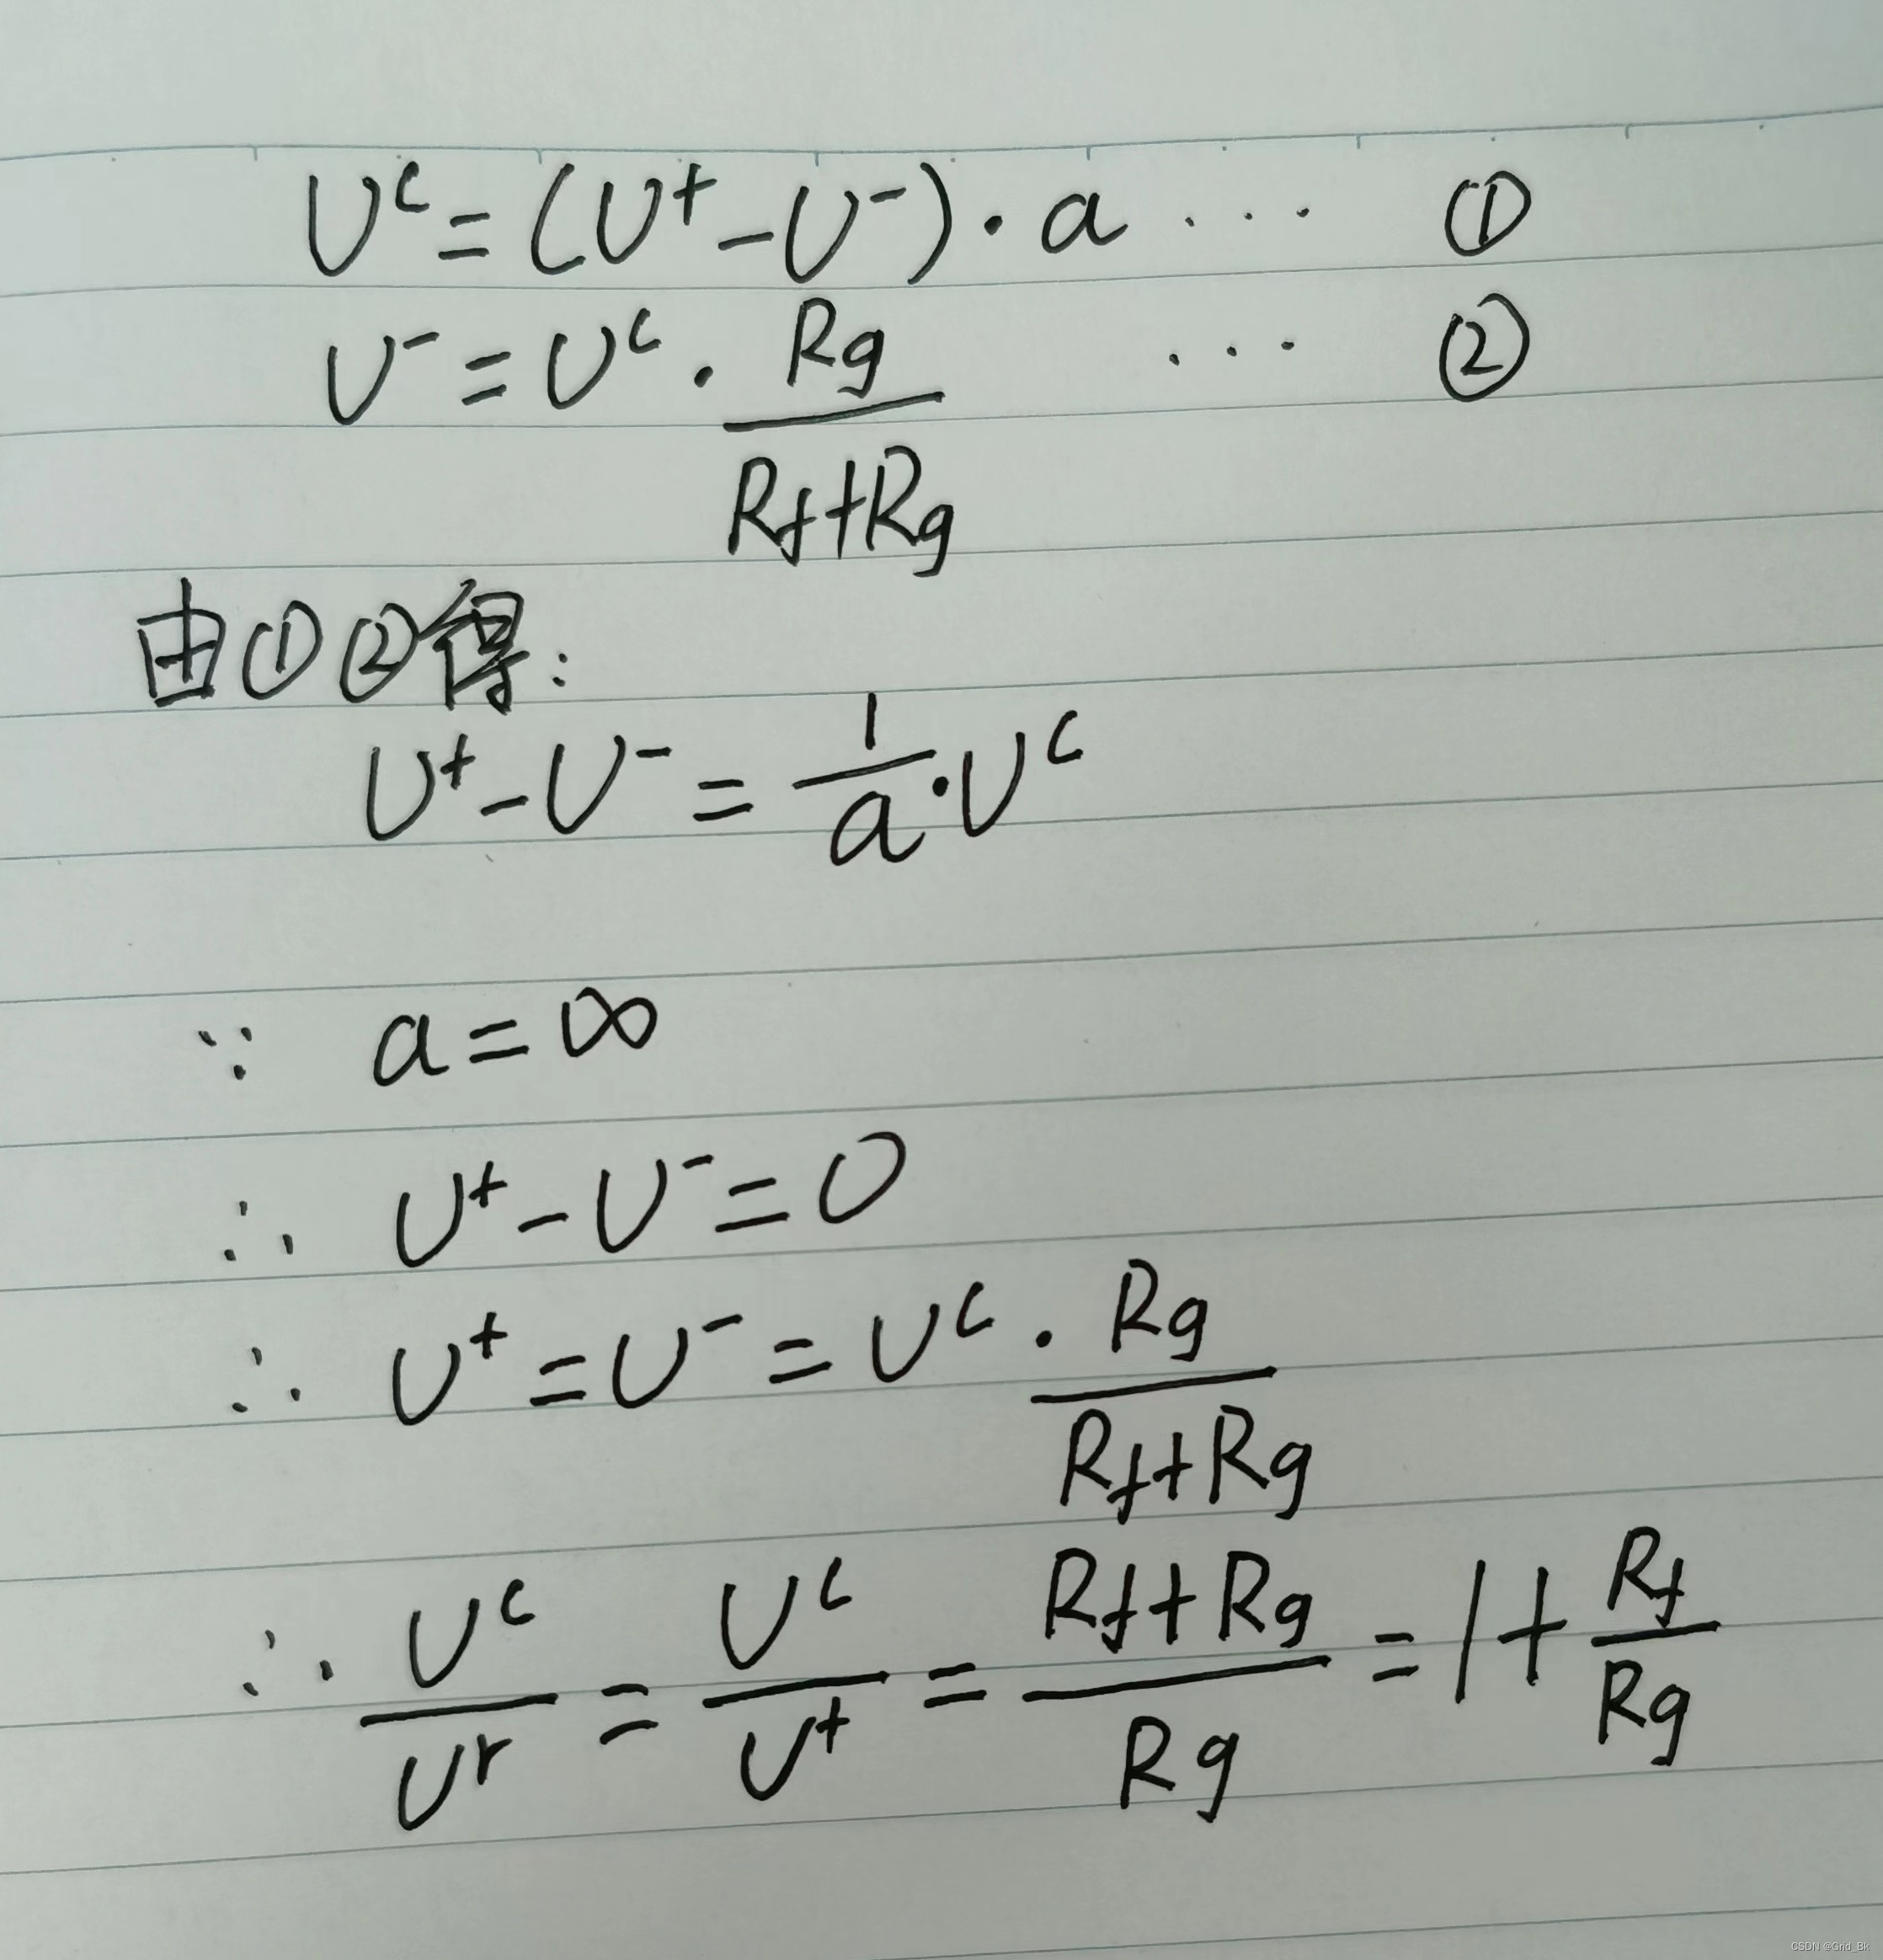 U^c = (U^+ - U^-) · a ... ①
U^- = U^c · Rg / (Rf+Rg) ... ②
由①②得:
U^+ - U^- = 1/a · U^c
∵ a = ∞
∴ U^+ - U^- = 0
∴ U^+ = U^- = U^c · Rg / (Rf+Rg)
∴ U^c / U^r = U^c / U^+ = (Rf+Rg) / Rg = 1 + Rf / Rg
CSDN @Grid_Bk